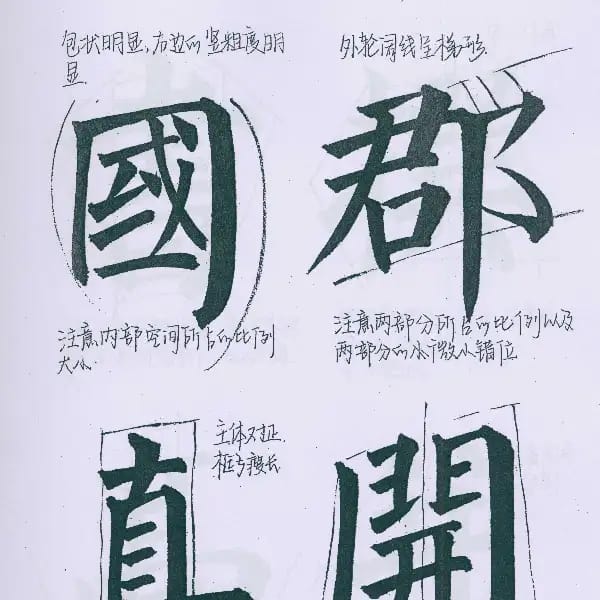 包状明显,右边的竖粗度明
显.
外轮阔线呈梯形
國
郡
注意内部空间所占的比例
大小.
注意两部分所占的比例以及
两部分的微小错位
主体对正.
瘦长
直
開